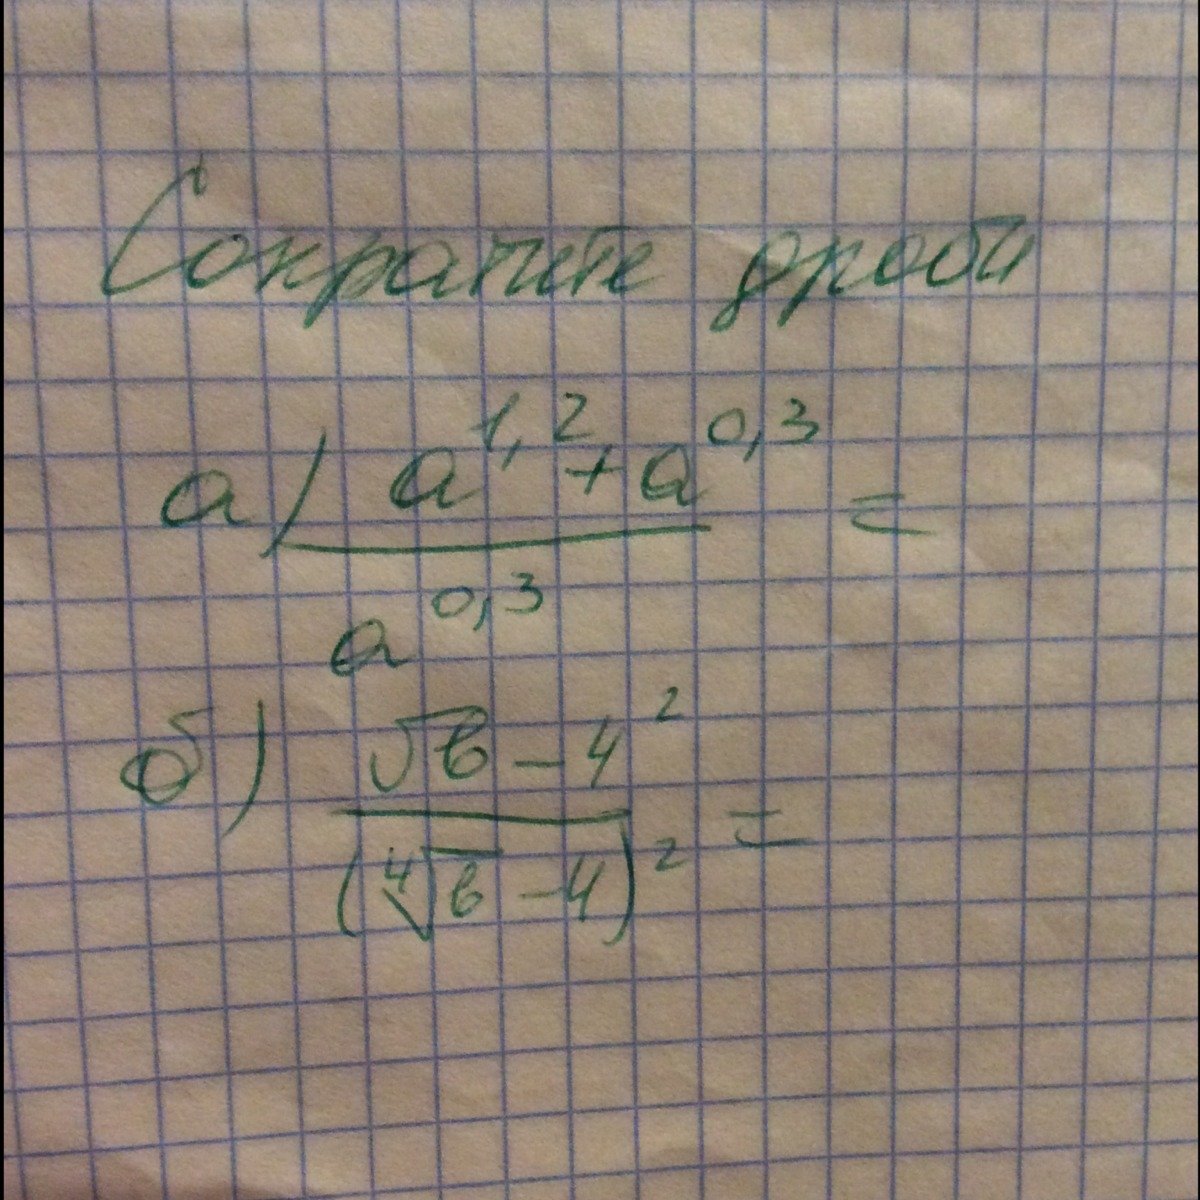 Сократите дроби
а) a^1,2 + a^0,3 =
a^0,3
б) √b - 4^2 =
(∜b - 4)^2